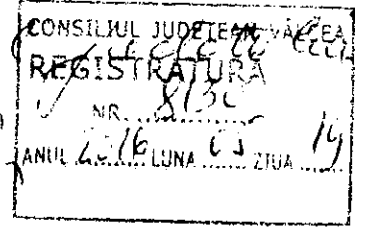 CONSILIUL JUDEŢEAN VÂLCEA
REGISTRATURA
NR. 8130
ANUL 2016 LUNA 05 ZIUA 19